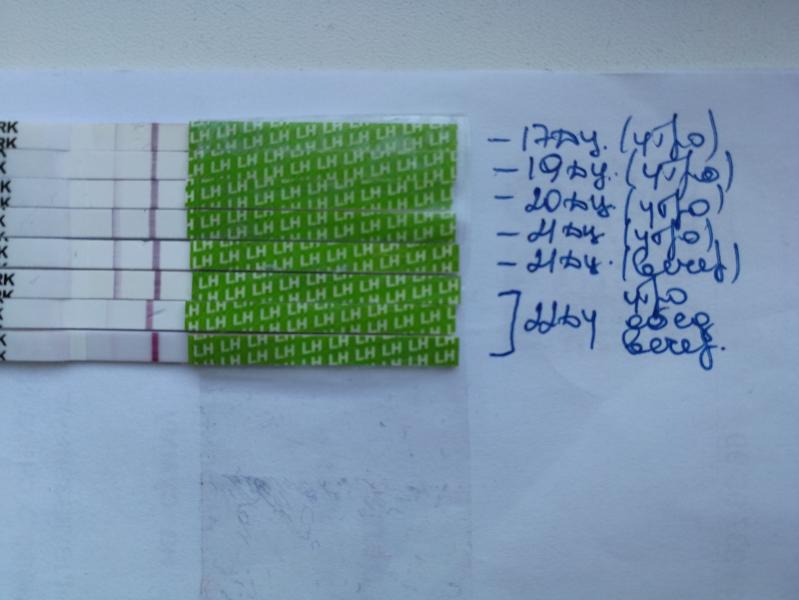 RK
RK
LH LH LH LH LH LH
– 17 ДЦ. (утро)
– 19 ДЦ. (утро)
– 20 ДЦ. (утро)
– 21 ДЦ (утро)
– 21 ДЦ. (вечер)
утро
] 22 ДЦ обед
вечер.